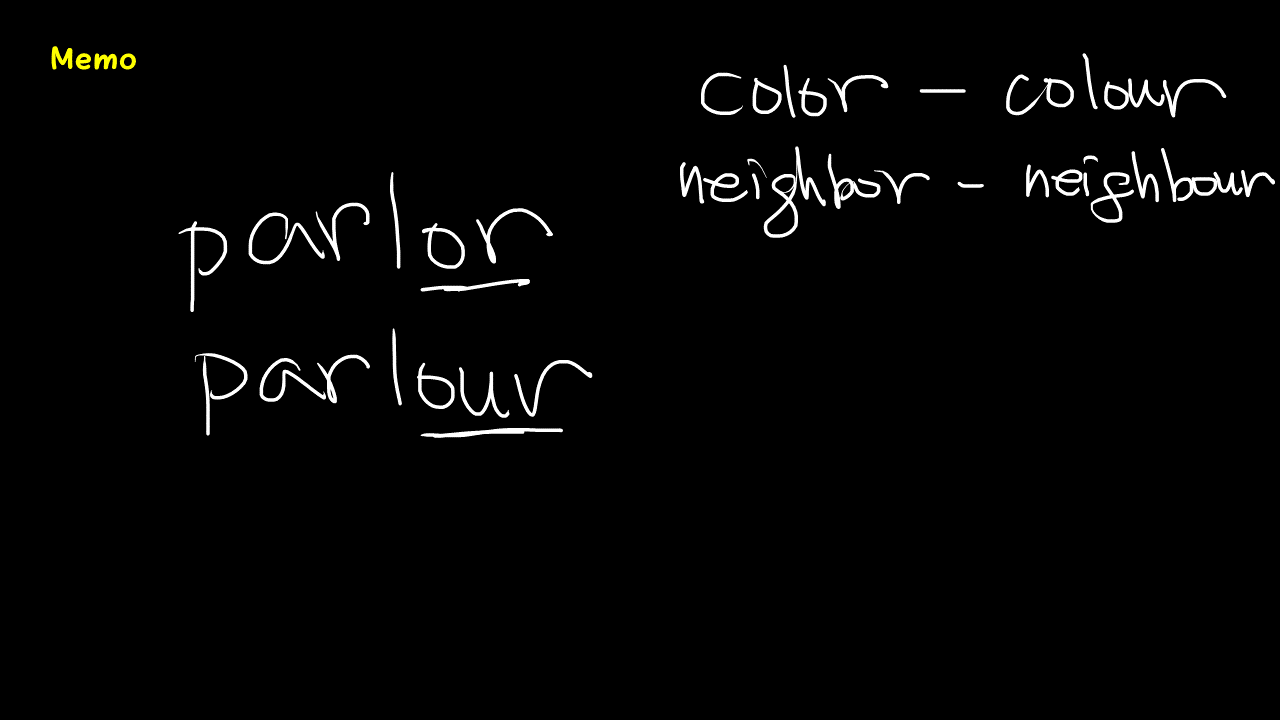 Memo
color - colour
neighbor - neighbour
parlor
parlour